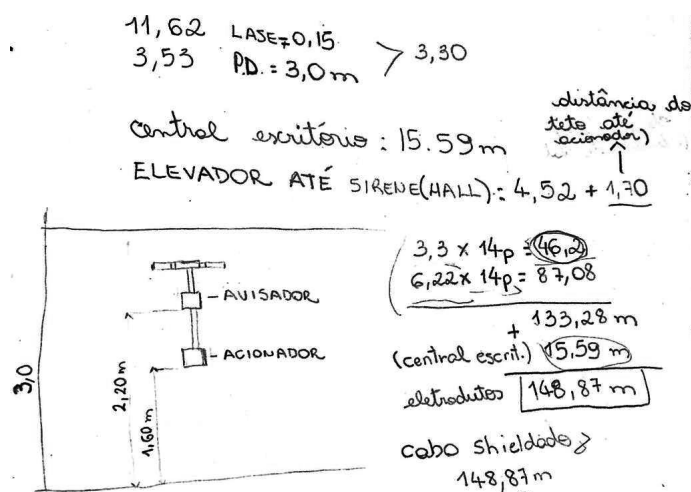 11,62 LAJE=0,15
3,53 P.D. = 3,0 m > 3,30
distância do
teto até
acionador)
central escritório : 15.59 m
ELEVADOR ATÉ SIRENE (HALL) : 4,52 + 1,70
3,3 x 14p = 46,2
6,22 x 14p = 87,08
+ 133,28 m
(central escrit.) 15,59 m
eletrodutos 148,87 m
cabo shieldado
148,87 m
AVISADOR
ACIONADOR
3,0
2,20 m
1,60 m